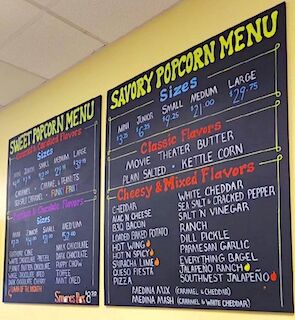 SWEET POPCORN MENU
Caramel & Candied Flavors
Sizes
MINI JUNIOR SMALL MEDIUM LARGE
CARAMEL • CARAMEL PEANUTS
SEA SALT CARAMEL
Sizes
MINI JUNIOR SMALL MEDIUM
MILK CHOCOLATE
DARK CHOCOLATE
PUPPY CHOW
TOFFEE
MINT OREO
S'mores
SAVORY POPCORN MENU
Sizes
MINI JUNIOR SMALL MEDIUM LARGE
$6.25 $9.25 $21.00 $29.75
Classic Flavors
MOVIE THEATER BUTTER
PLAIN SALTED • KETTLE CORN
Cheesy & Mixed Flavors
CHEDDAR
MAC N CHEESE
BBQ BACON
LOADED BAKED POTATO
HOT WING
HOT N SPICY
SRIRACHA LIME
QUESO FIESTA
PIZZA
WHITE CHEDDAR
SEA SALT & CRACKED PEPPER
SALT N VINEGAR
RANCH
DILL PICKLE
PARMESAN GARLIC
EVERYTHING BAGEL
JALAPEÑO RANCH
SOUTHWEST JALAPEÑO
MEDINA MIX (CARAMEL & CHEDDAR)
MEDINA MASH (CARAMEL & WHITE CHEDDAR)